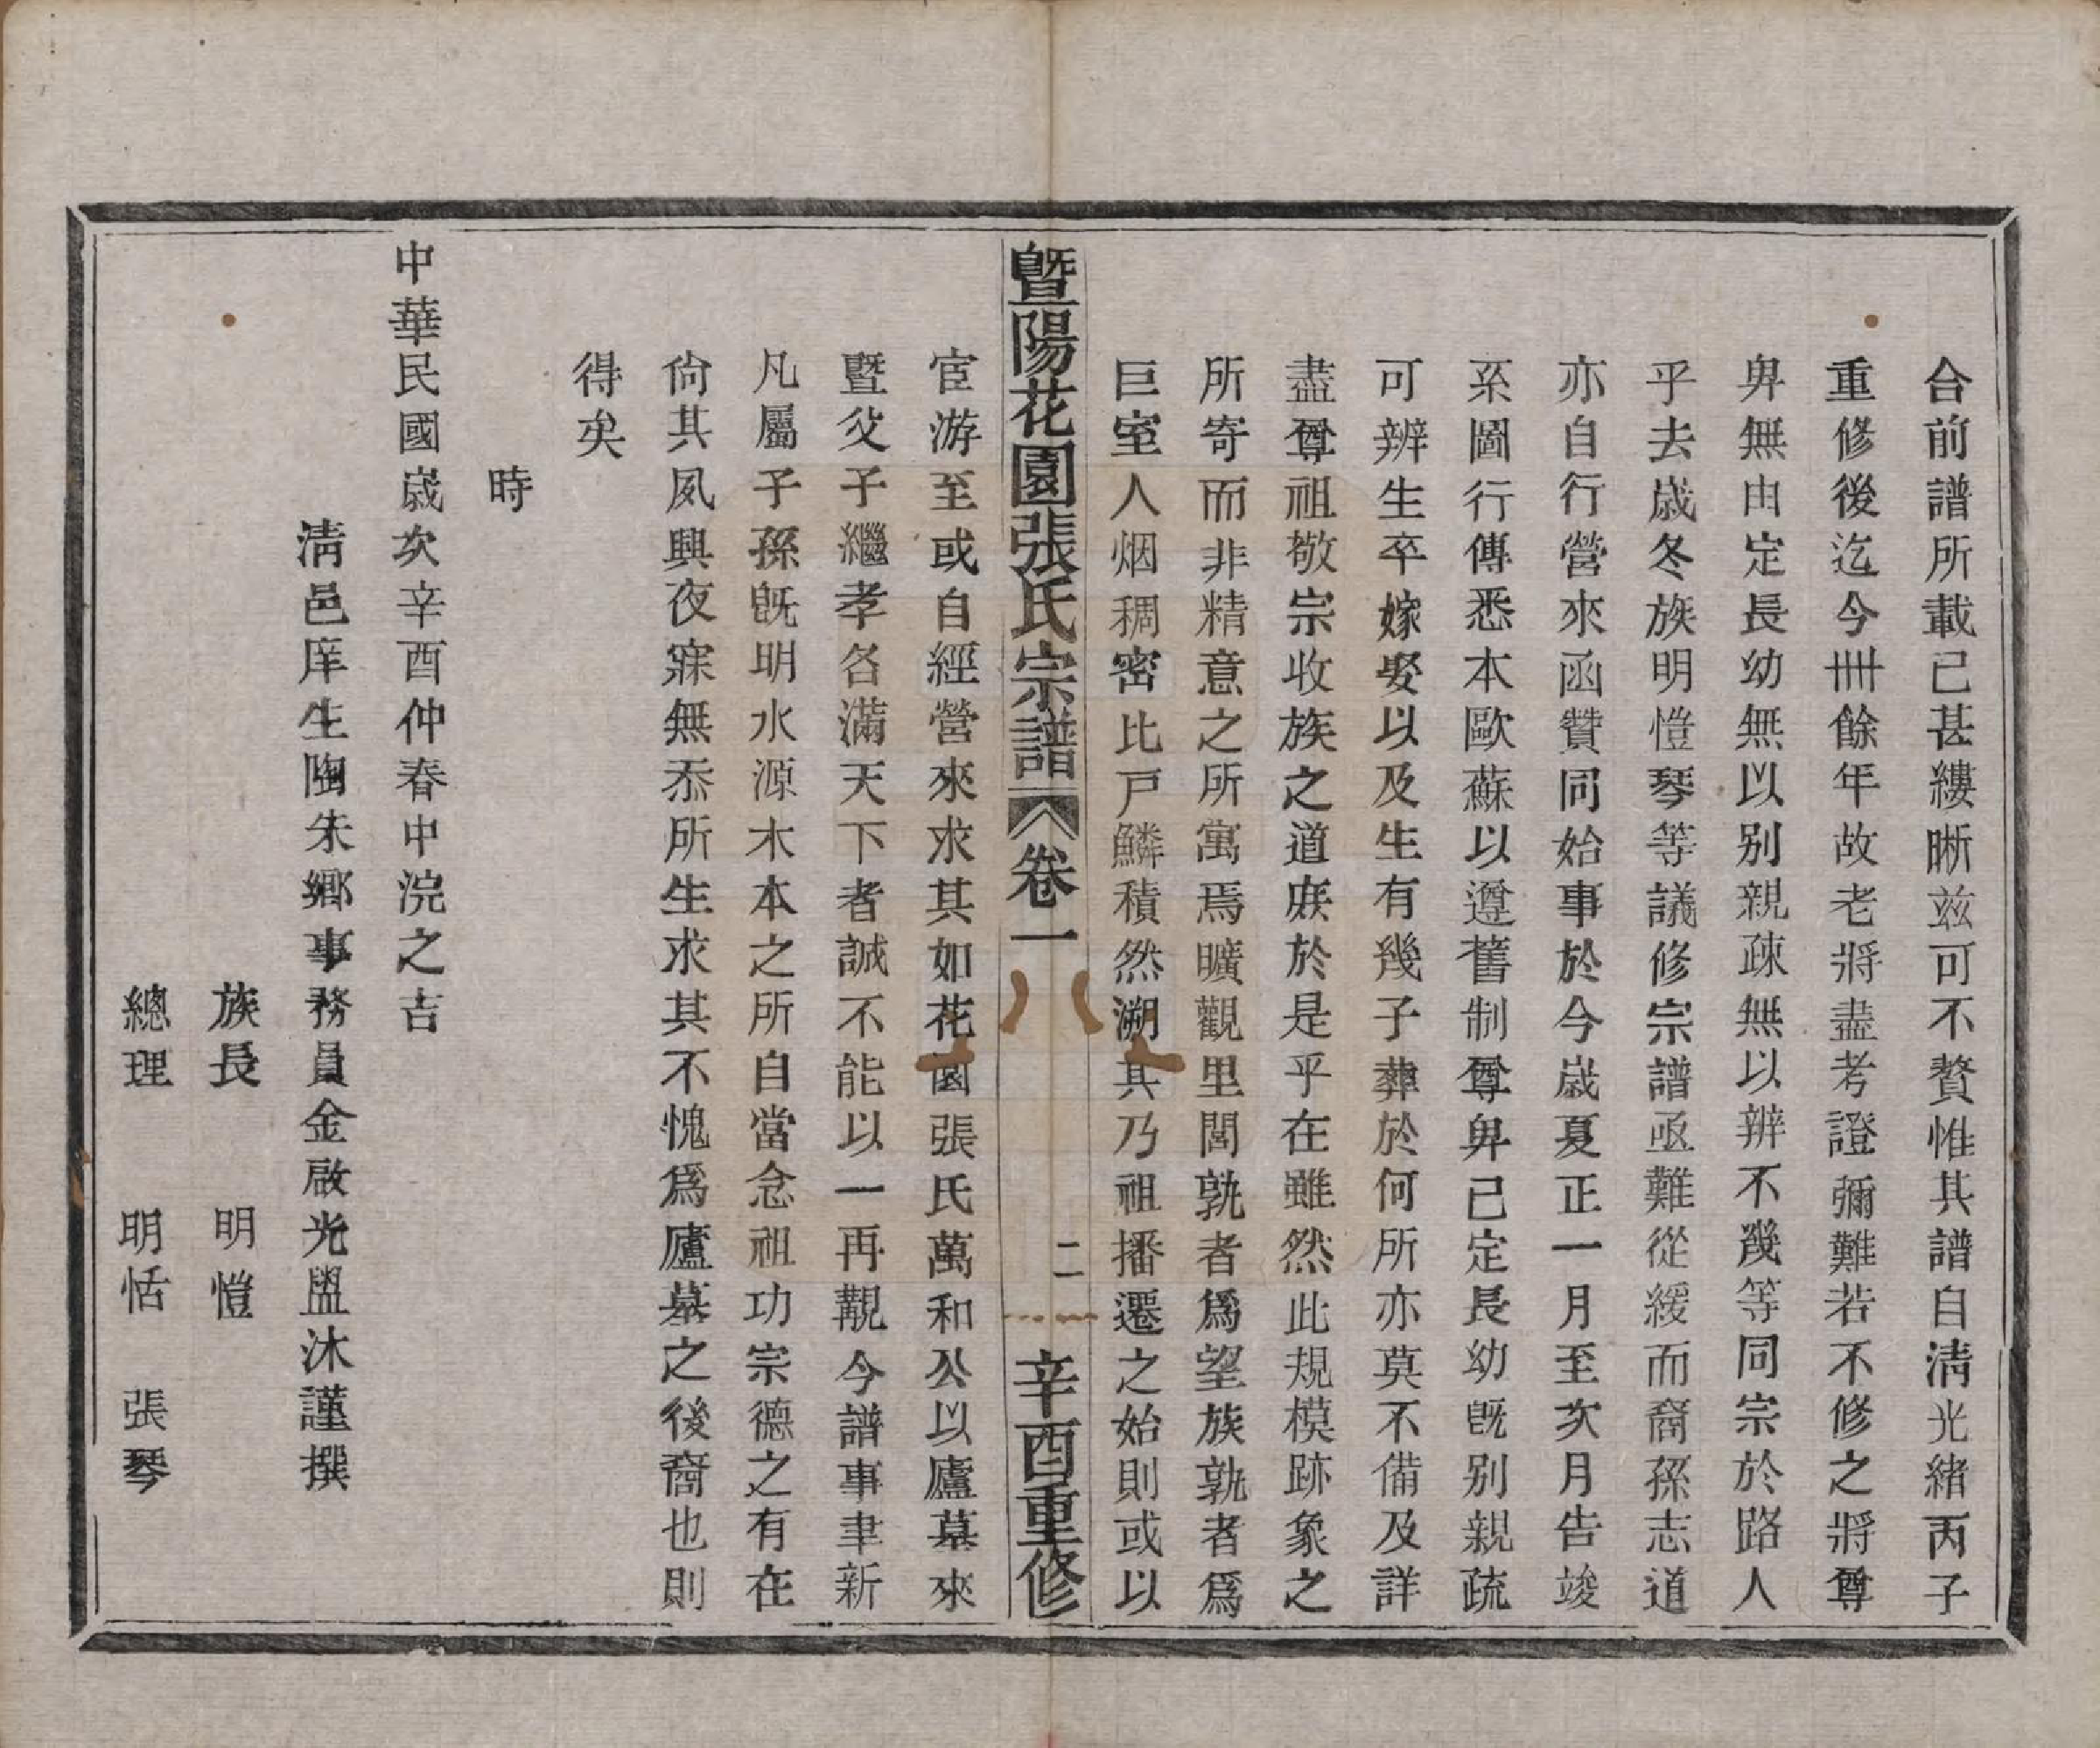 合前譜所載已甚縷晰玆可不贅惟其譜自淸光緖丙子
重修後迄今卅餘年故老將盡考證彌難若不修之將尊
卑無由定長幼無以别親疎無以辨不幾等同宗於路人
乎去歲冬族明愷琴等議修宗譜亟難從緩而裔孫志道
亦自行營來函贊同始事於今歲夏正一月至次月告竣
系圖行傳悉本歐蘇以遵舊制尊卑已定長幼旣别親疏
可辨生卒嫁娶以及生有幾子葬於何所亦莫不備及詳
盡尊祖敬宗收族之道庻於是乎在雖然此規模跡象之
所寄而非精意之所寓焉曠觀里閭孰者爲望族孰者爲
巨室人烟稠密比戸鱗積然溯其乃祖播遷之始則或以
暨陽花園張氏宗譜 卷一 二 辛酉重修
宦游至或自經營來求其如花園張氏萬和公以廬墓來
曁父子繼孝各滿天下者誠不能以一再覯今譜事聿新
凡屬子孫旣明水源木本之所自當念祖功宗德之有在
尙其夙興夜寐無忝所生求其不愧爲廬墓之後裔也則
得矣
時
中華民國歲次辛酉仲春中浣之吉
淸邑庠生陶朱鄉事務員金啟光盥沐謹撰
族長 明愷
總理 明恬 張琴